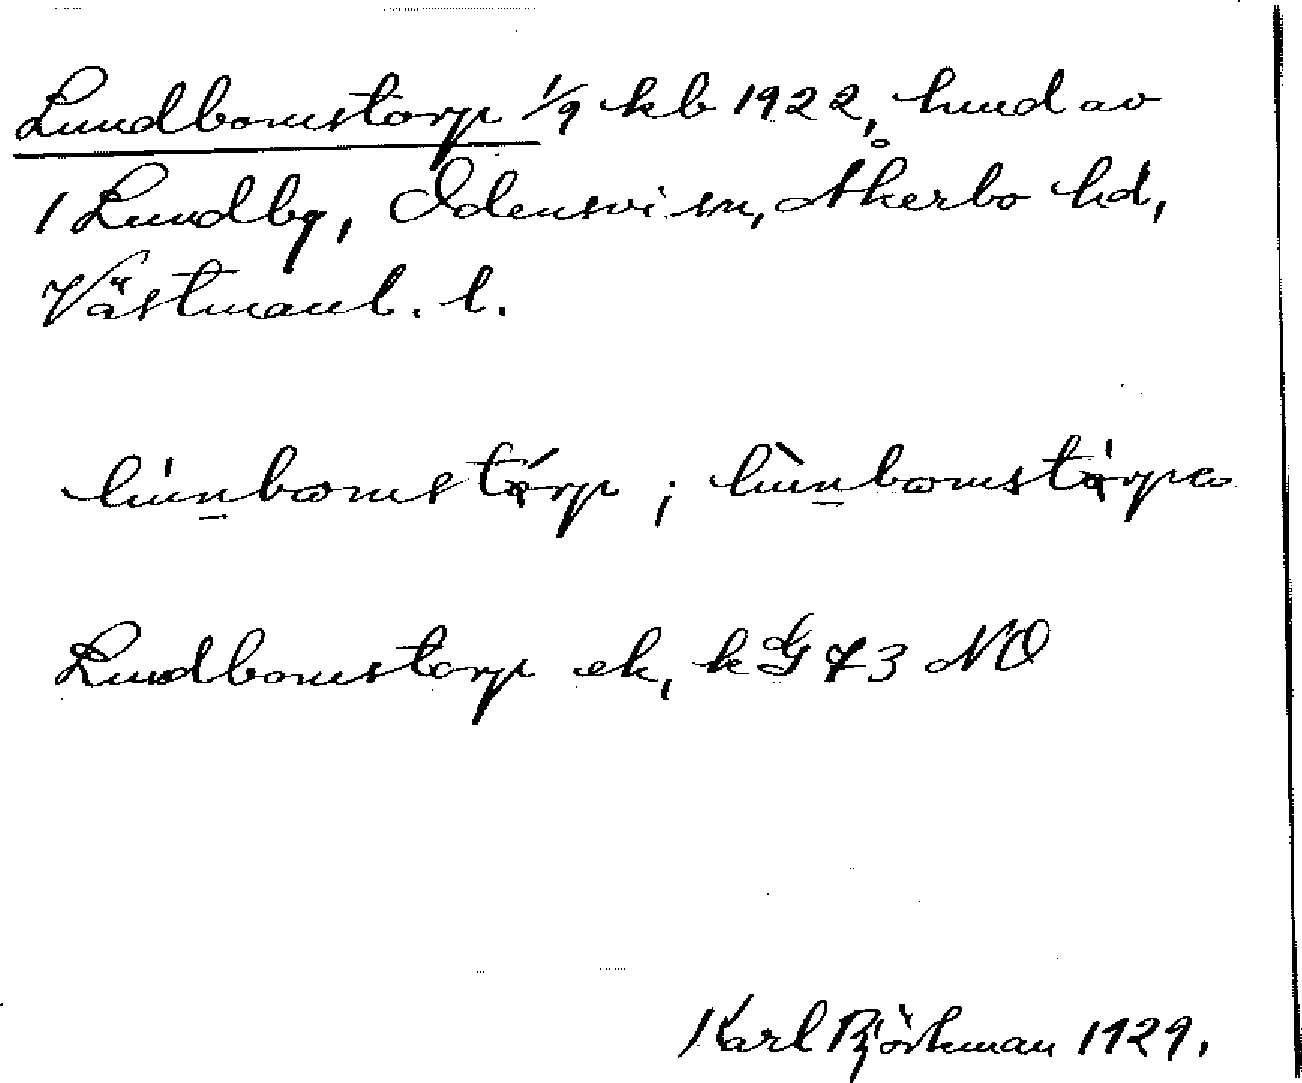 Lundbomstorp 1/9 kb 1922, hmd av
1 Lundby, Odensvi sn, Åkerbo hd,
Västmanl. l.
lúnbomstårp ; lùnbomstårpa
Lundbomstorp ek, k G 73 NO
Karl Björkman 1929.